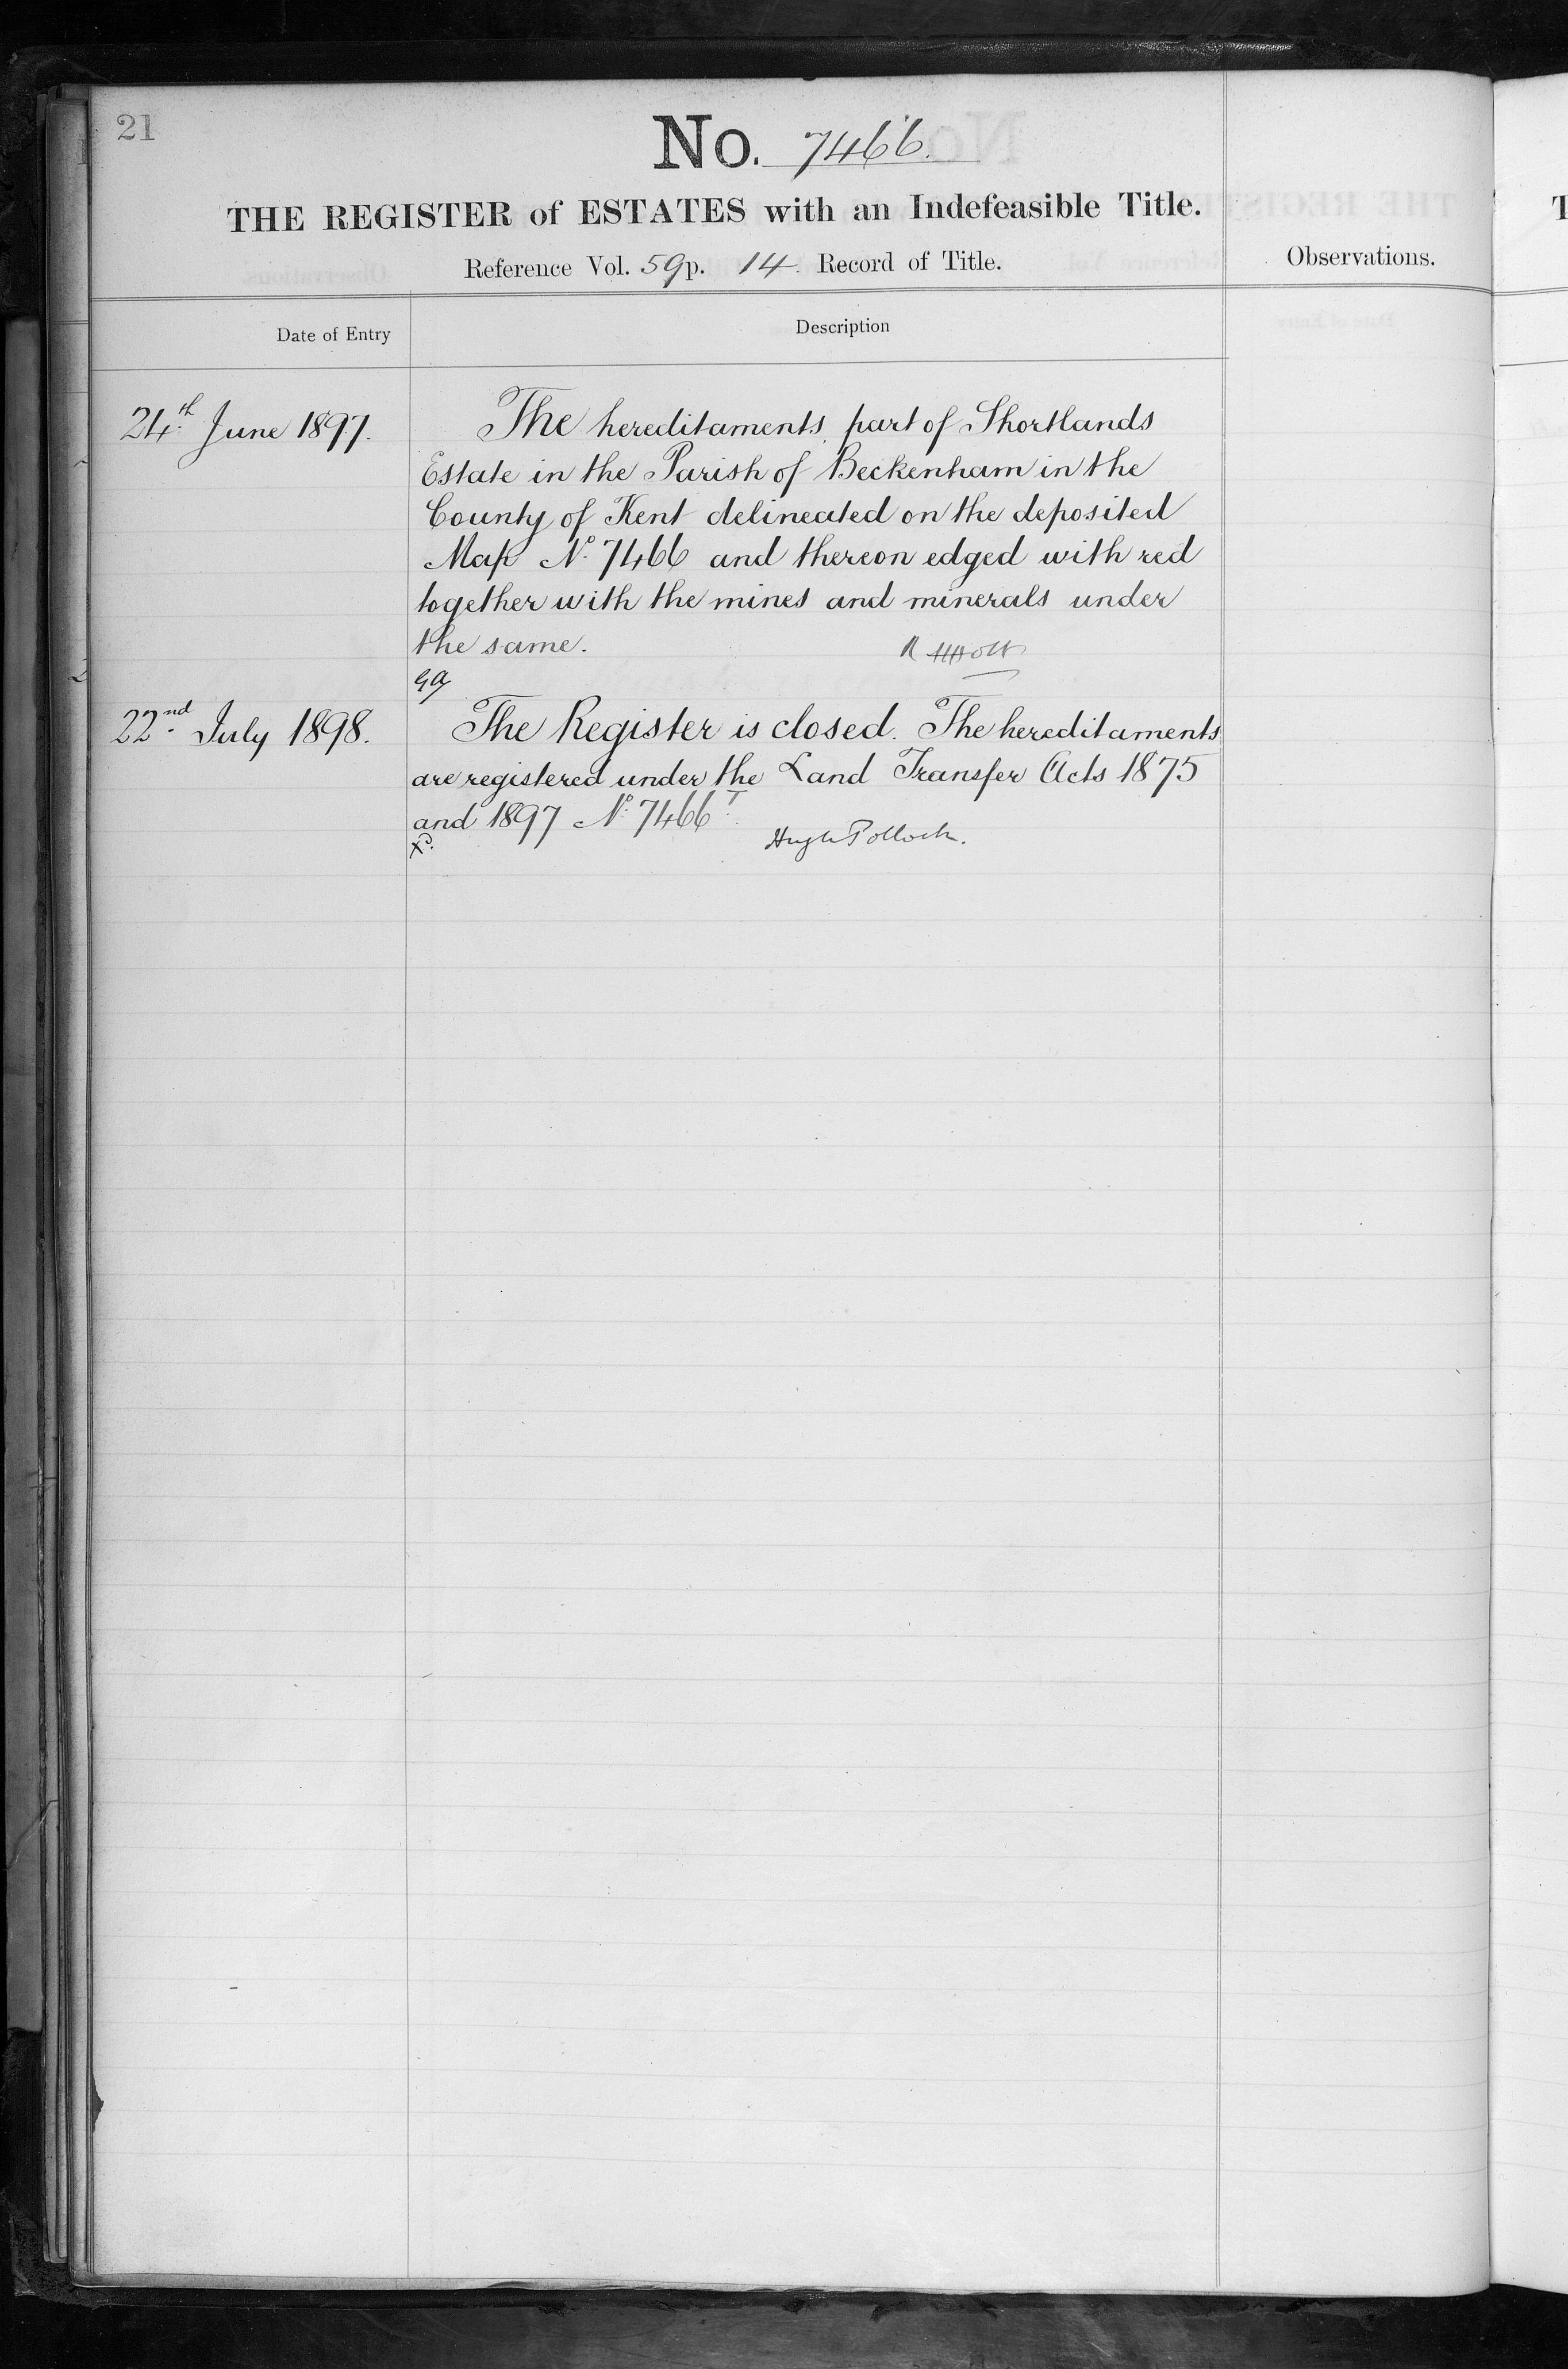 21
No. 7466.
THE REGISTER of ESTATES with an Indefeasible Title.
Reference Vol. 59 p. 14 Record of Title.
Observations.
Date of Entry
Description
24th June 1897.
The hereditaments part of Shortlands
Estate in the Parish of Beckenham in the
County of Kent delineated on the deposited
Map No. 7466 and thereon edged with red
together with the mines and minerals under
the same.
22nd July 1898.
The Register is closed. The hereditaments
are registered under the Land Transfer Acts 1875
and 1897 No. 7466T
Hugh Pollock.